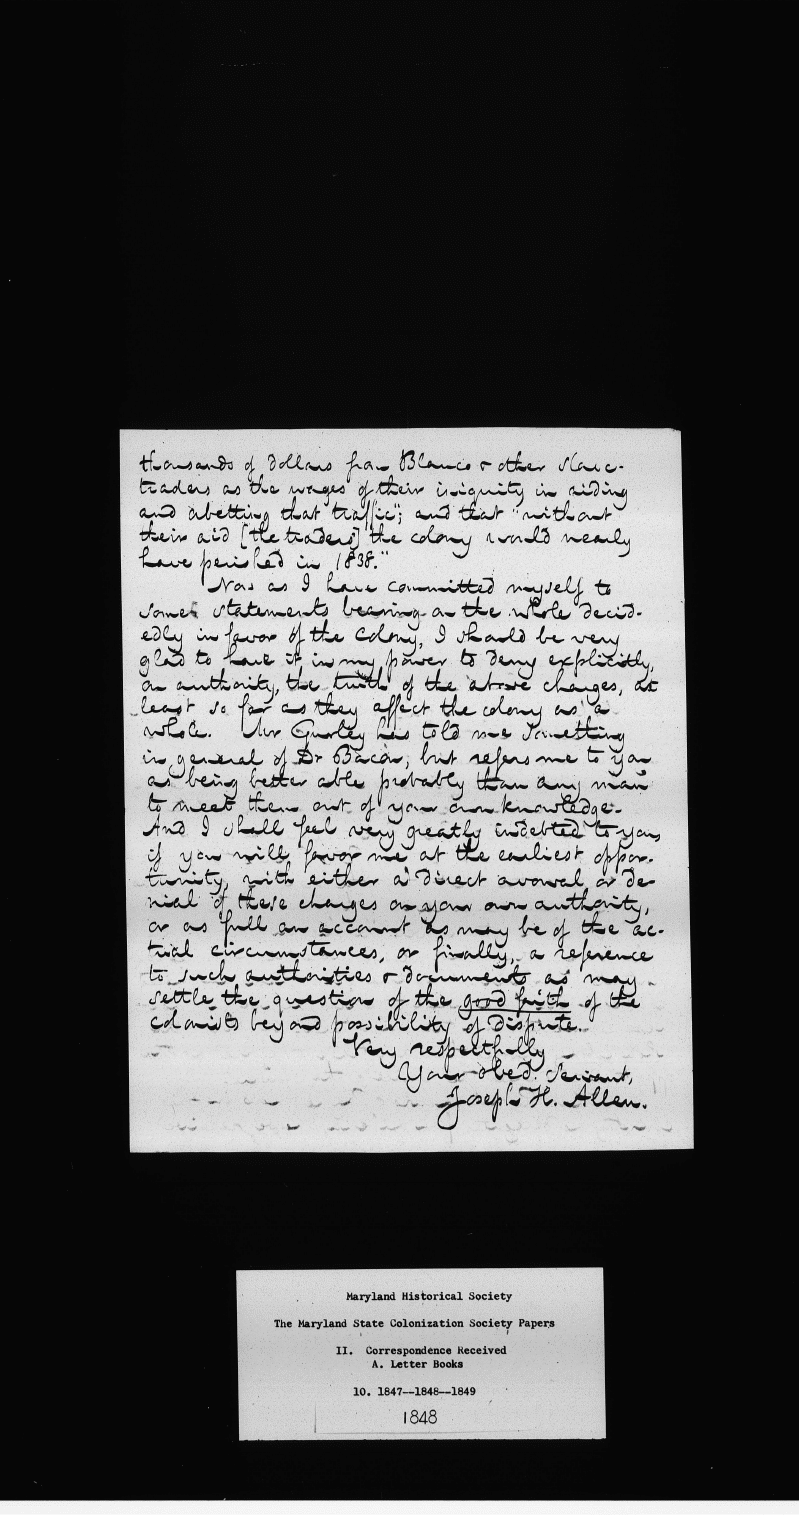 thousands of dollars from Blanco & other slave-
traders as the wages of their iniquity in aiding
and abetting that traffic"; and that "without
their aid [the traders] the colony would nearly
have perished in 1838."
Now as I have committed myself to
some statements bearing on the whole decid-
edly in favor of the colony, I should be very
glad to have it in my power to deny explicitly,
on authority, the truth of the above charges, at
least so far as they affect the colony as a
whole. Mr Gurley has told me something
in general of Dr Bacon, but refers me to you
as being better able probably than any man
to meet them out of your own knowledge.
And I shall feel very greatly indebted to you,
if you will favor me at the earliest oppor-
tunity, with either a direct avowal or de-
nial of these charges on your own authority,
or as full an account as may be of the ac-
tual circumstances, or finally, a reference
to such authorities & documents as may
settle the question of the good faith of the
colonists beyond possibility of dispute.
Very respectfully
Your obed. Servant,
Joseph H. Allen.
Maryland Historical Society
The Maryland State Colonization Society Papers
II. Correspondence Received
A. Letter Books
10. 1847--1848--1849
1848